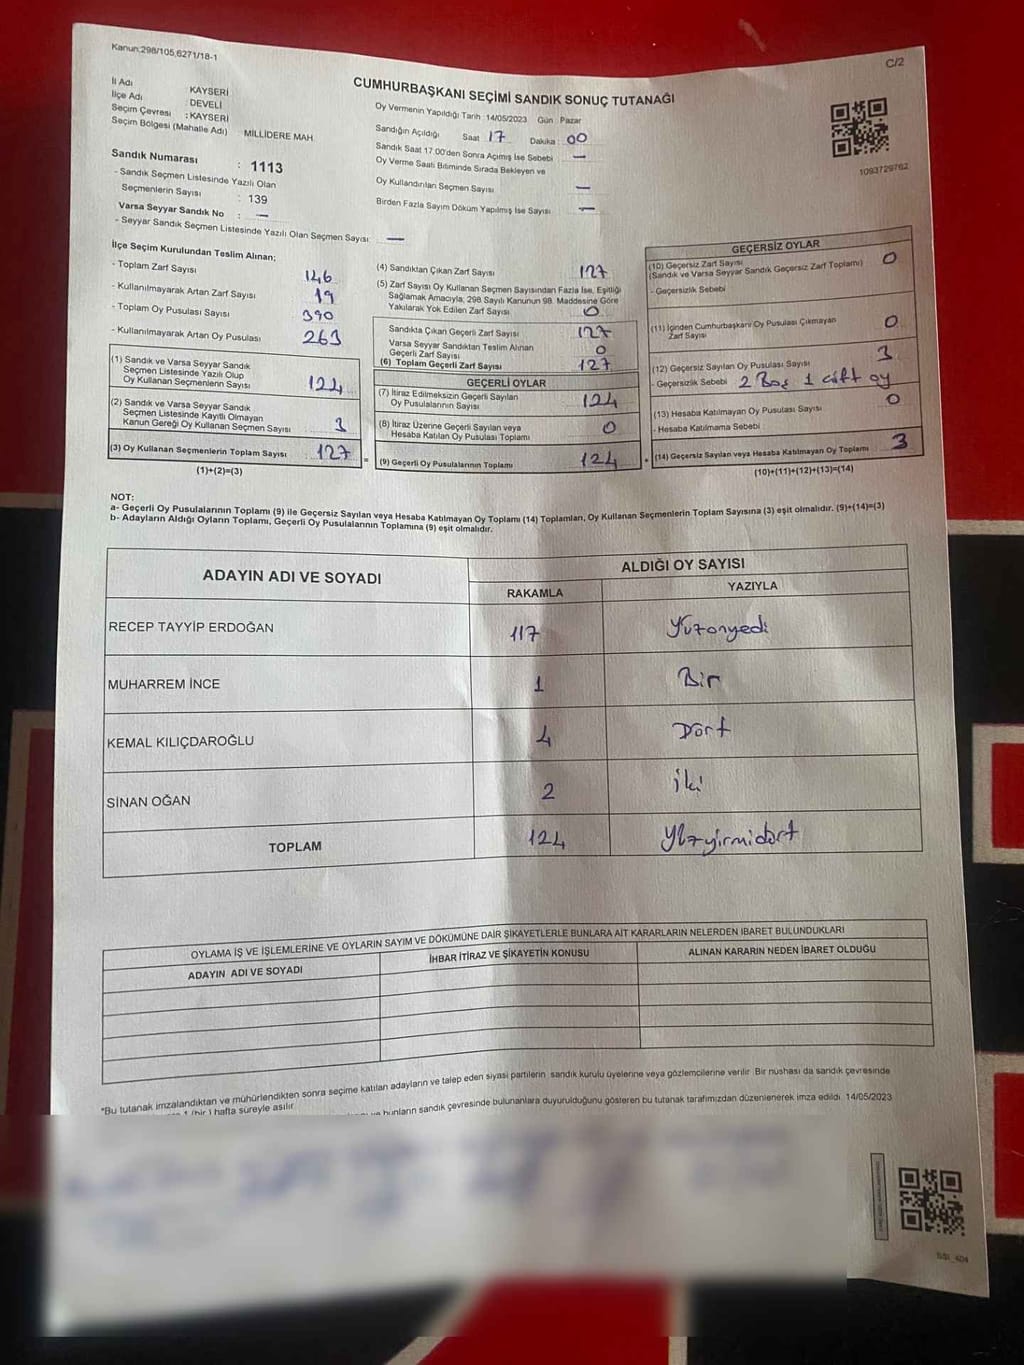 Kanun;298/105,6271/18-1
C/2
CUMHURBAŞKANI SEÇİMİ SANDIK SONUÇ TUTANAĞI
İl Adı : KAYSERİ
İlçe Adı : DEVELİ
Seçim Çevresi : KAYSERİ
Seçim Bölgesi (Mahalle Adı) : MİLLİDERE MAH
Sandık Numarası : 1113
- Sandık Seçmen Listesinde Yazılı Olan
Seçmenlerin Sayısı : 139
Varsa Seyyar Sandık No : —
- Seyyar Sandık Seçmen Listesinde Yazılı Olan Seçmen Sayısı —
Oy Vermenin Yapıldığı Tarih 14/05/2023 Gün : Pazar
Sandığın Açıldığı Saat 17 Dakika : 00
Sandık Saat 17.00'den Sonra Açımış İse Sebebi —
Oy Verme Saati Bitiminde Sırada Bekleyen ve
Oy Kullandırılan Seçmen Sayısı —
Birden Fazla Sayım Döküm Yapılmış İse Sayısı —
1093729762
İlçe Seçim Kurulundan Teslim Alınan;
- Toplam Zarf Sayısı 146
- Kullanılmayarak Artan Zarf Sayısı 19
- Toplam Oy Pusulası Sayısı 390
- Kullanılmayarak Artan Oy Pusulası 263
(1) Sandık ve Varsa Seyyar Sandık
Seçmen Listesinde Yazılı Olup
Oy Kullanan Seçmenlerin Sayısı 124
(2) Sandık ve Varsa Seyyar Sandık
Seçmen Listesinde Kayıtlı Olmayan
Kanun Gereği Oy Kullanan Seçmen Sayısı 3
(3) Oy Kullanan Seçmenlerin Toplam Sayısı 127
(1)+(2)=(3)
(4) Sandıktan Çıkan Zarf Sayısı 127
(5) Zarf Sayısı Oy Kullanan Seçmen Sayısından Fazla İse, Eşitliği
Sağlamak Amacıyla, 298 Sayılı Kanunun 98. Maddesine Göre
Yakılarak Yok Edilen Zarf Sayısı 0
Sandıkta Çıkan Geçerli Zarf Sayısı 127
Varsa Seyyar Sandıktan Teslim Alınan
Geçerli Zarf Sayısı 0
(6) Toplam Geçerli Zarf Sayısı 127
GEÇERLİ OYLAR
(7) İtiraz Edilmeksizin Geçerli Sayılan
Oy Pusulalarının Sayısı 124
(8) İtiraz Üzerine Geçerli Sayılan veya
Hesaba Katılan Oy Pusulası Toplamı 0
= (9) Geçerli Oy Pusulalarının Toplamı 124
GEÇERSİZ OYLAR
(10) Geçersiz Zarf Sayısı
(Sandık ve Varsa Seyyar Sandık Geçersiz Zarf Toplamı) 0
- Geçersizlik Sebebi
(11) İçinden Cumhurbaşkanı Oy Pusulası Çıkmayan
Zarf Sayısı 0
(12) Geçersiz Sayılan Oy Pusulası Sayısı 3
- Geçersizlik Sebebi 2 Boş 1 çift oy
(13) Hesaba Katılmayan Oy Pusulası Sayısı 0
- Hesaba Katılmama Sebebi
+ (14) Geçersiz Sayılan veya Hesaba Katılmayan Oy Toplamı 3
(10)+(11)+(12)+(13)=(14)
NOT:
a- Geçerli Oy Pusulalarının Toplamı (9) ile Geçersiz Sayılan veya Hesaba Katılmayan Oy Toplamı (14) Toplamları, Oy Kullanan Seçmenlerin Toplam Sayısına (3) eşit olmalıdır. (9)+(14)=(3)
b- Adayların Aldığı Oyların Toplamı, Geçerli Oy Pusulalarının Toplamına (9) eşit olmalıdır.
ADAYIN ADI VE SOYADI ALDIĞI OY SAYISI
RAKAMLA YAZIYLA
RECEP TAYYİP ERDOĞAN 117 Yüzonyedi
MUHARREM İNCE 1 Bir
KEMAL KILIÇDAROĞLU 4 Dört
SİNAN OĞAN 2 İki
TOPLAM 124 Yüzyirmidört
OYLAMA İŞ VE İŞLEMLERİNE VE OYLARIN SAYIM VE DÖKÜMÜNE DAİR ŞİKAYETLERLE BUNLARA AİT KARARLARIN NELERDEN İBARET BULUNDUKLARI
ADAYIN ADI VE SOYADI İHBAR İTİRAZ VE ŞİKAYETİN KONUSU ALINAN KARARIN NEDEN İBARET OLDUĞU
*Bu tutanak imzalandıktan ve mühürlendikten sonra seçime katılan adayların ve talep eden siyasi partilerin sandık kurulu üyelerine veya gözlemcilerine verilir. Bir nüshası da sandık çevresinde
1 (bir) hafta süreyle asılır.
ve bunların sandık çevresinde bulunanlara duyurulduğunu gösteren bu tutanak tarafımızdan düzenlenerek imza edildi. 14/05/2023